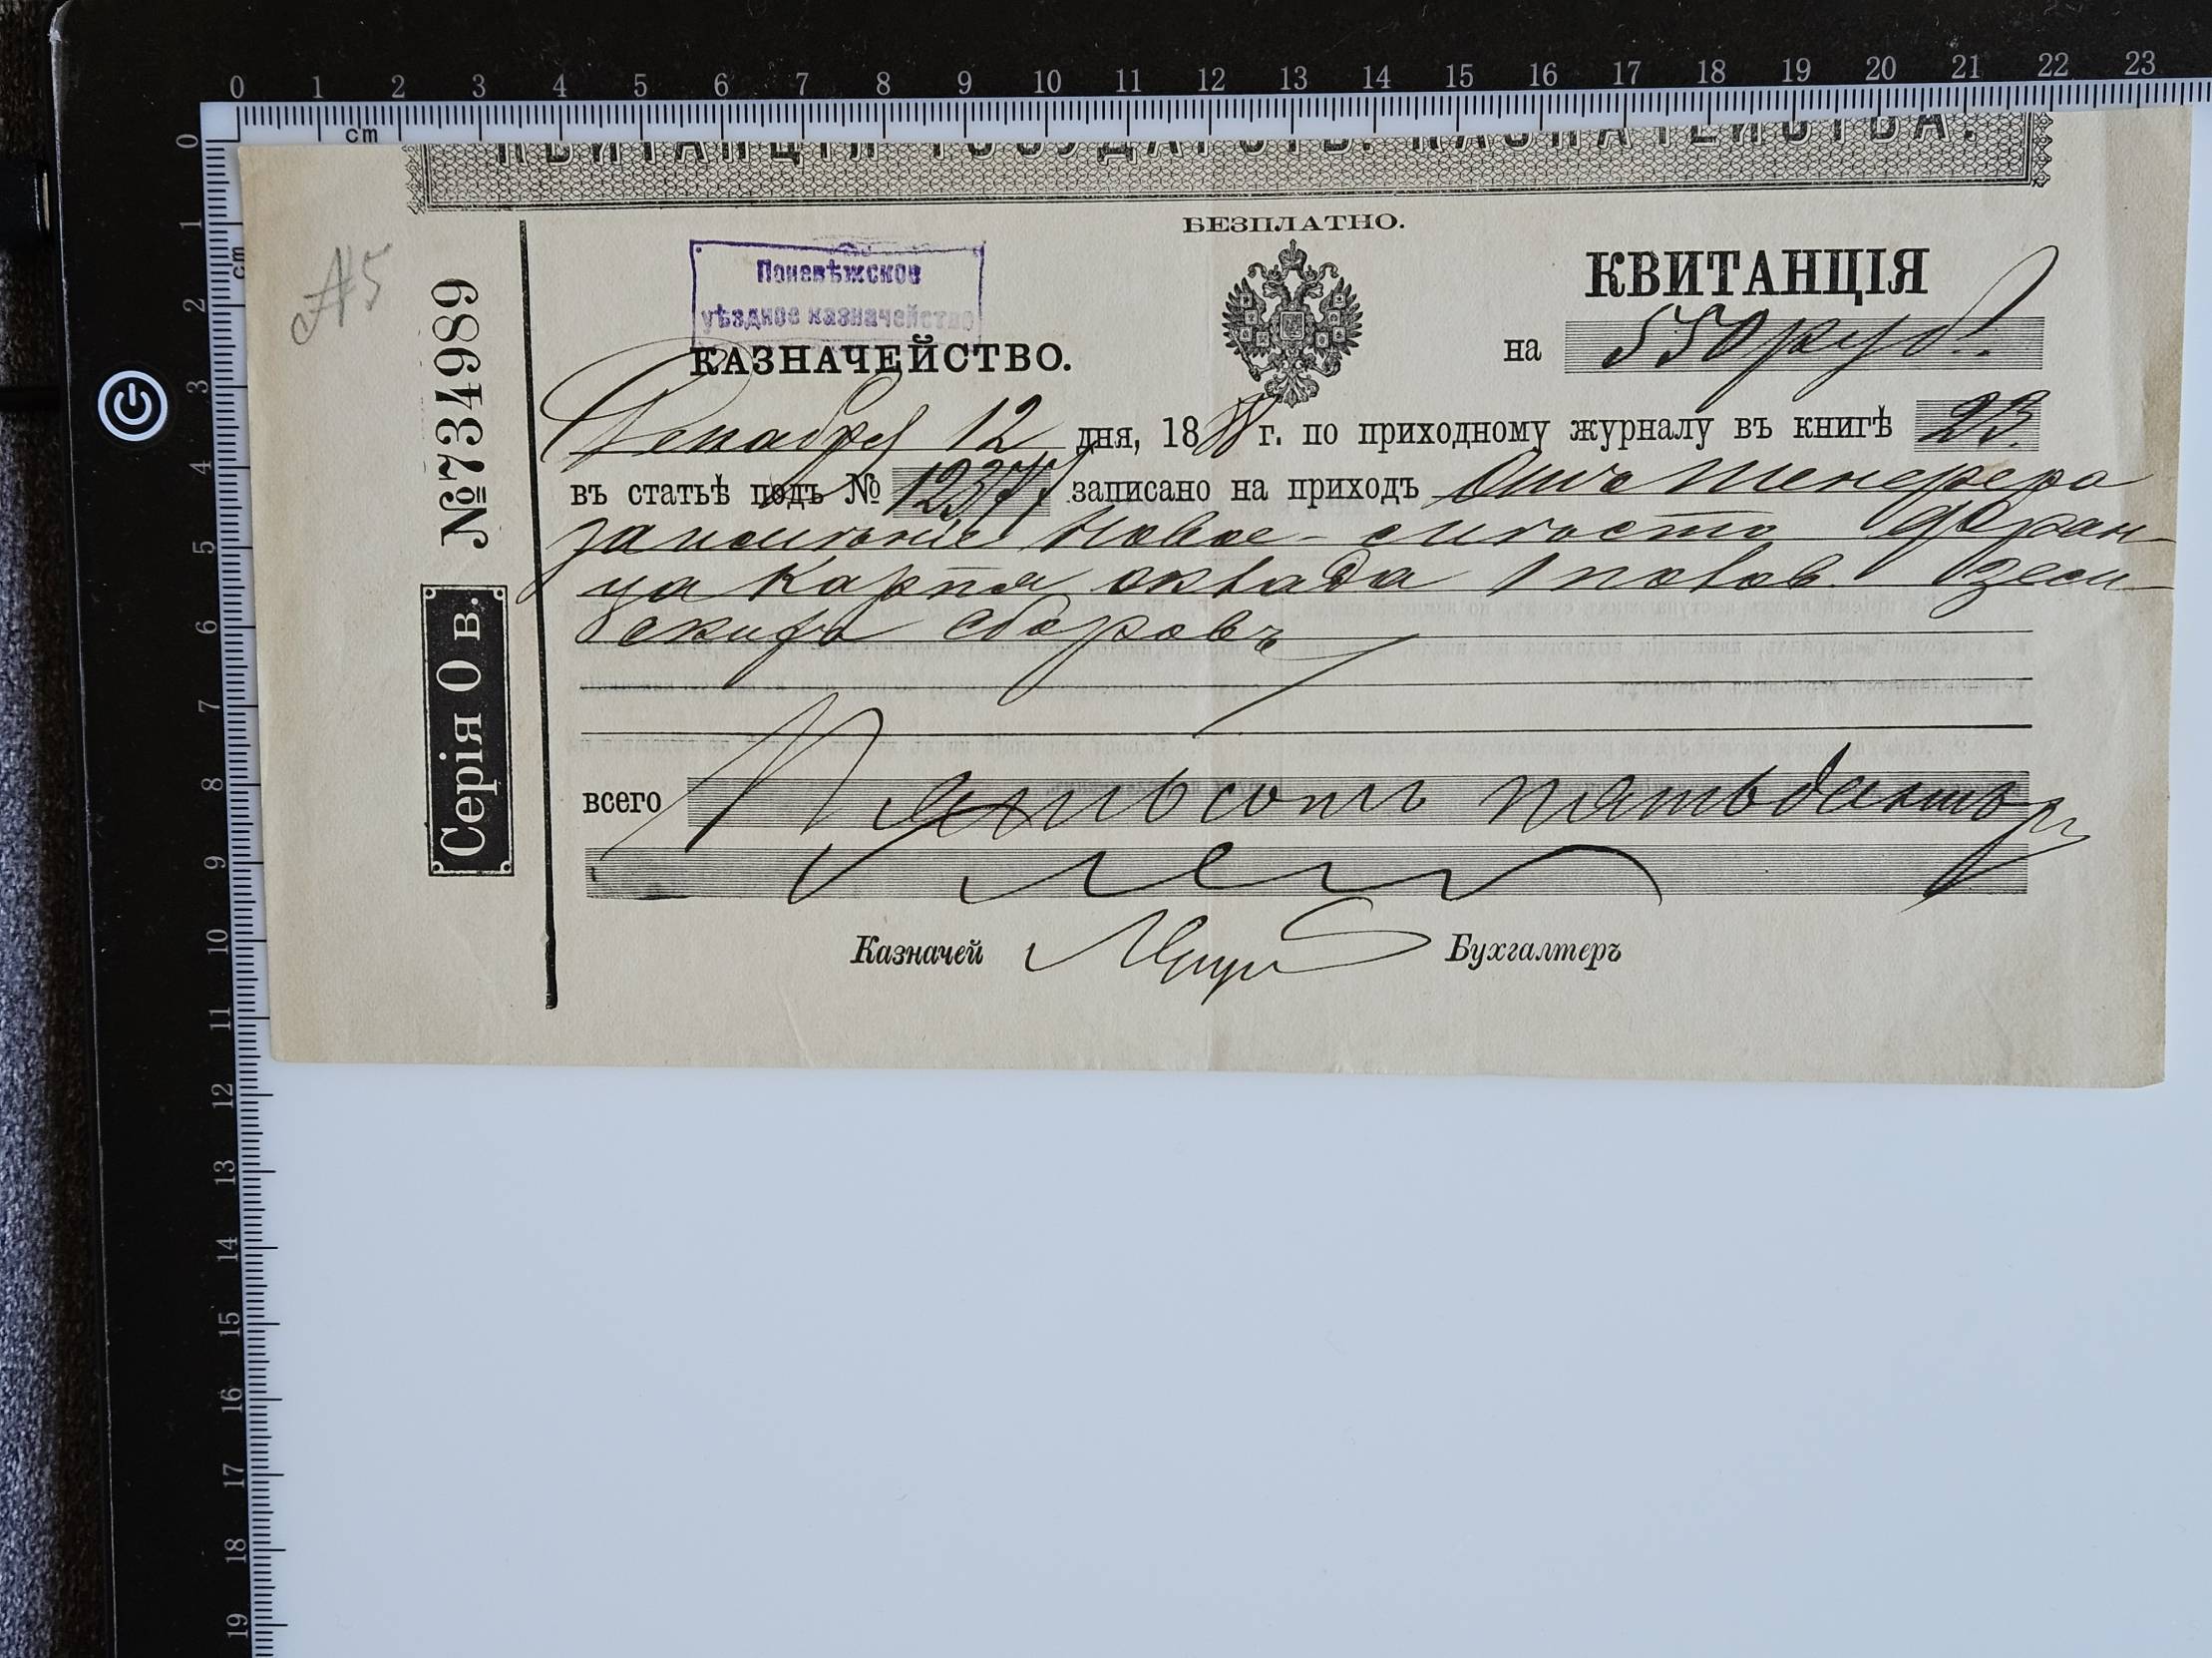 КВИТАНЦІЯ ГОСУДАРСТВ. КАЗНАЧЕЙСТВА.
БЕЗПЛАТНО.
Поневѣжское
уѣздное казначейство
КАЗНАЧЕЙСТВО.
КВИТАНЦІЯ
на 550 руб.
Декабря 12 дня, 188 г. по приходному журналу въ книгѣ 23
въ статьѣ подъ № записано на приходъ Отъ
Ново- Фран-
ца Карпя оклада зем-
скихъ сборовъ
всего Пятьсотъ пятьдесятъ р
Казначей Бухгалтеръ
№ 734989
Серія О в.
№5
0 1 2 3 4 5 6 7 8 9 10 11 12 13 14 15 16 17 18 19 20 21 22 23
cm
0 1 2 3 4 5 6 7 8 9 10 11 12 13 14 15 16 17 18 19
cm